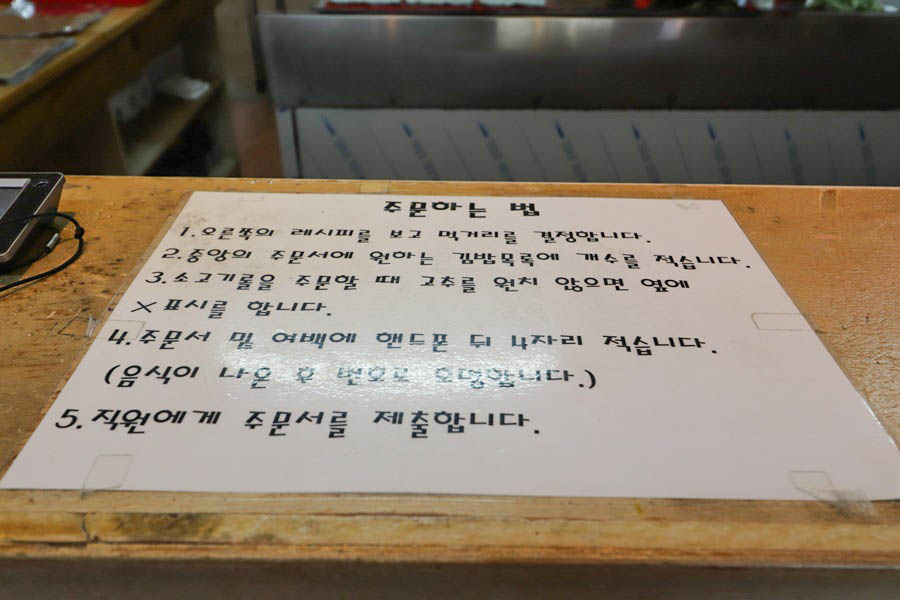 주문하는 법
1. 오른쪽의 레시피를 보고 먹거리를 결정합니다.
2. 중앙의 주문서에 원하는 김밥목록에 개수를 적습니다.
3. 소고기물을 주문할 때 고추를 원치 않으면 옆에
X 표시를 합니다.
4. 주문서 밑 여백에 핸드폰 뒤 4자리 적습니다.
(음식이 나온 후 번호로 호명합니다.)
5. 직원에게 주문서를 제출합니다.